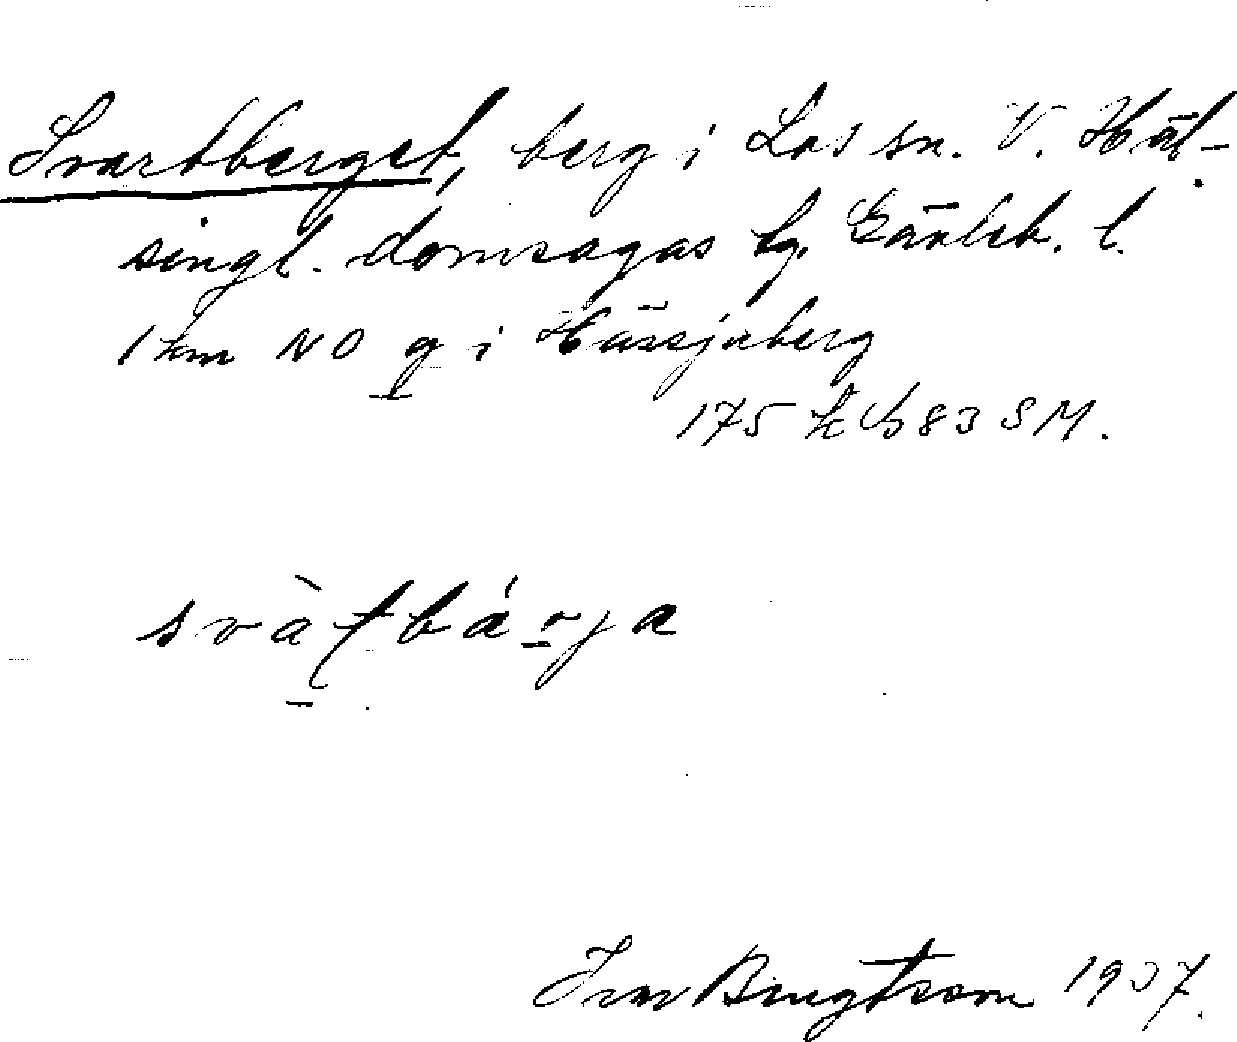 Svartberget, berg i Los sn. V. Häl-
singl. domsagas tg. Gävleb. l.
1 km NO g i Hässjaberg
175 83 SM.
svàtbárja
Ivar Bengtsson 1937.